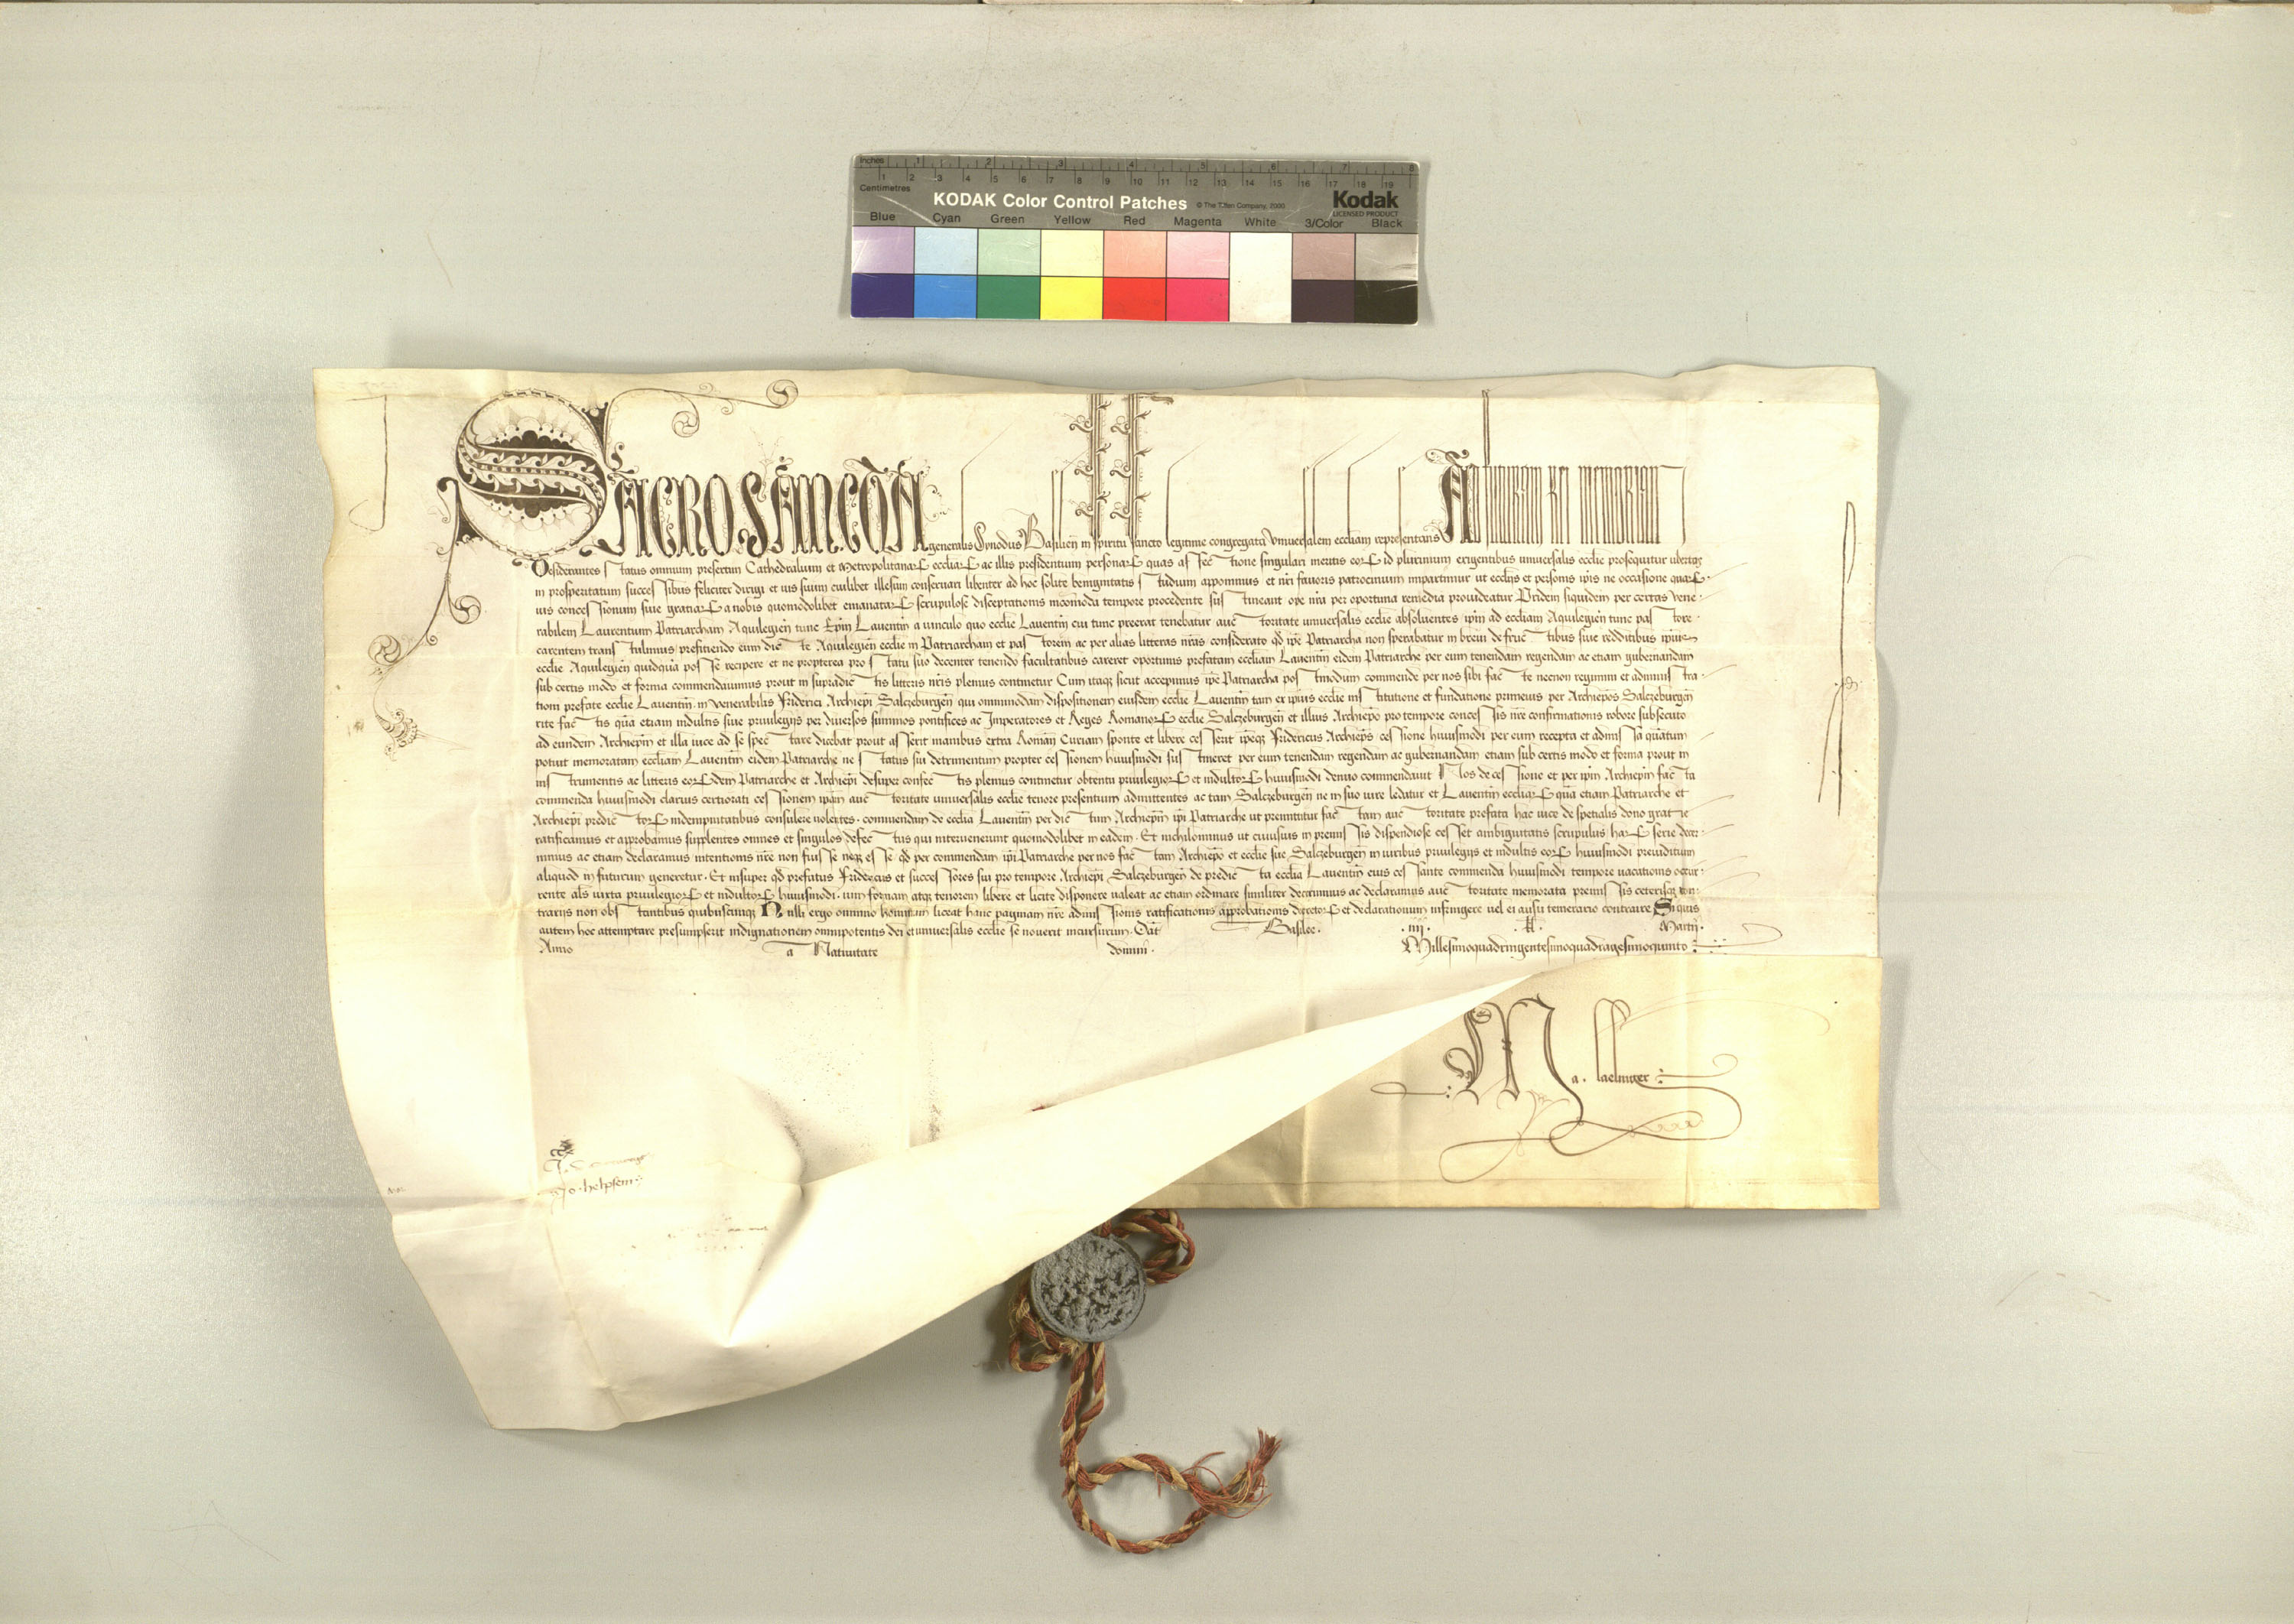 Inches 1 2 3 4 5 6 7 8
Centimetres 1 2 3 4 5 6 7 8 9 10 11 12 13 14 15 16 17 18 19
KODAK Color Control Patches © The Tiffen Company, 2000 Kodak
LICENSED PRODUCT
Blue Cyan Green Yellow Red Magenta White 3/Color Black
SACROSANCTA generalis Synodus Basilien in spiritu sancto legitime congregata Universalem eccliam representans Ad futuram rei memoriam
Desiderantes statum omnium presertim Cathedralium et Metropolitanarꝝ eccliarꝝ ac illis presidentium personarꝝ quas assectione singulari meritis eorꝝ id plurimum exigentibus universalis ecclie prosequitur ubertas
in prosperitatum successibus feliciter dirigi et ius suum cuilibet illesum conservari libenter ad hoc solite benignitatis studium apponimus et nri favoris patrocinium impartimur ut ecclijs et personis ipis ne occasione quarꝝ
vis concessionum sive gratiarꝝ a nobis quomodolibet emanatarꝝ scrupulose disceptationis incomoda tempore procedente sustineant ope nra per oportuna remedia provideatur Pridem siquidem per certas vene
rabilem Laurentium Patriarcham Aquilegien tunc Epin Lauentin a vinculo quo ecclie Lauentin cui tunc preerat tenebatur auctoritate universalis ecclie absolventes ipm ad eccliam Aquilegien tunc pastore
carentem transtulimus preficiendo eum dicte Aquilegien ecclie in Patriarcham et pastorem ac per alias litteras nras considerato qd ipe Patriarcha non sperabatur in brevi de fructibus sive redditibus ipius
ecclie Aquilegien quidquam posse recipere et ne propterea pro statu suo decenter tenendo facultatibus careret oportunis prefatam eccliam Lauentin eidem Patriarche per eum tenendam regendam ac etiam gubernandam
sub certis modo et forma commendavimus prout in supradictis litteris nris plenius continetur Cum itaqꝫ sicut accepimus ipe Patriarcha postmodum commende per nos sibi facte necnon regimini et administra
tioni prefate ecclie Lauentin in venerabilis Friderici Archiepi Salczeburgen qui omnimodam dispositionem eiusdem ecclie Lauentin tam ex ipius ecclie institutione et fundatione primevis per Archiepos Salczeburgen
rite factis quam etiam indultis sive privilegijs per diversos summos pontifices ac Imperatores et Reges Romanorꝝ ecclie Salczeburgen et illius Archiepo pro tempore concessis nre confirmationis robore subsecuto
ad eundem Archiepm et illa vice ad se spectare dicebat prout asserit manibus extra Roman Curiam sponte et libere cesserit ipeqꝫ Fridericus Archieps cessione huiusmodi per eum recepta et admissa quantum
potuit memoratam eccliam Lauentin eidem Patriarche ne status sui detrimentum propter cessionem huiusmodi sustineret per eum tenendam regendam ac gubernandam etiam sub certis modo et forma prout in
instrumentis ac litteris eorꝝdem Patriarche et Archiepi desuper confectis plenius continetur obtentu privilegiorꝝ et indultorꝝ huiusmodi denuo commendavit Nos de cessione et per ipm Archiepm facta
commenda huiusmodi clarius certiorati cessionem ipam auctoritate universalis ecclie tenore presentium admittentes ac tam Salczeburgen ne in suo iure ledatur et Lauentin eccliarꝝ quam etiam Patriarche et
Archiepi predictorꝝ indempnitatibus consulere volentes commendam de ecclia Lauentin per dictum Archiepm ipi Patriarche ut premittitur factam auctoritate prefata hac vice de spetialis dono gratie
ratificamus et approbamus supplentes omnes et singulos defectus qui intervenerint quomodolibet in eadem Et nichilominus ut cuiusvis in premissis dispendiose cesset ambiguitatis scrupulus harꝝ serie decer
nimus ac etiam declaramus intentionis nre non fuisse neqꝫ esse qd per commendam ipi Patriarche per nos factam Archiepo et ecclie sue Salczeburgen in iuribus privilegijs et indultis eorꝝ huiusmodi preiuditium
aliquod in futurum generetur Et insuper qd prefatus Fridericus et successores sui pro tempore Archiepi Salczeburgen de predicta ecclia Lauentin eius cessante commenda huiusmodi tempore vacationis occur
rente als iuxta privilegiorꝝ et indultorꝝ huiusmodi vim formam atqꝫ tenorem libere et licite disponere valeat ac etiam ordinare similiter decernimus ac declaramus auctoritate memorata premissis ceterisqꝫ con
trarijs non obstantibus quibuscunqꝫ Nulli ergo omnino hominum liceat hanc paginam nre admissionis ratificationis approbationis decretorꝝ et declarationum infringere vel ei ausu temerario contraire Si quis
autem hoc attemptare presumpserit indignationem omnipotentis dei et universalis ecclie se noverit incursurum Dat Basilee iiij kl Martij
Anno a Nativitate domini Millesimoquadringentesimoquadragesimoquinto
Jo. helpsem